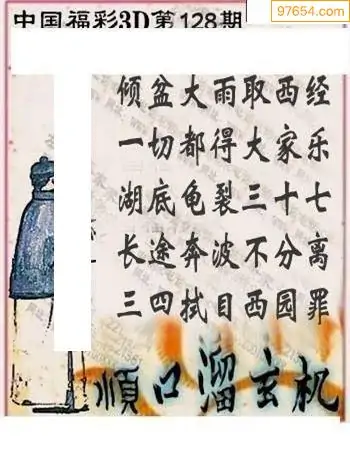 97654.com
中国福彩3D第128期
倾盆大雨取西经
一切都得大家乐
湖底龟裂三十七
长途奔波不分离
三四拭目西园罪
順口溜玄机